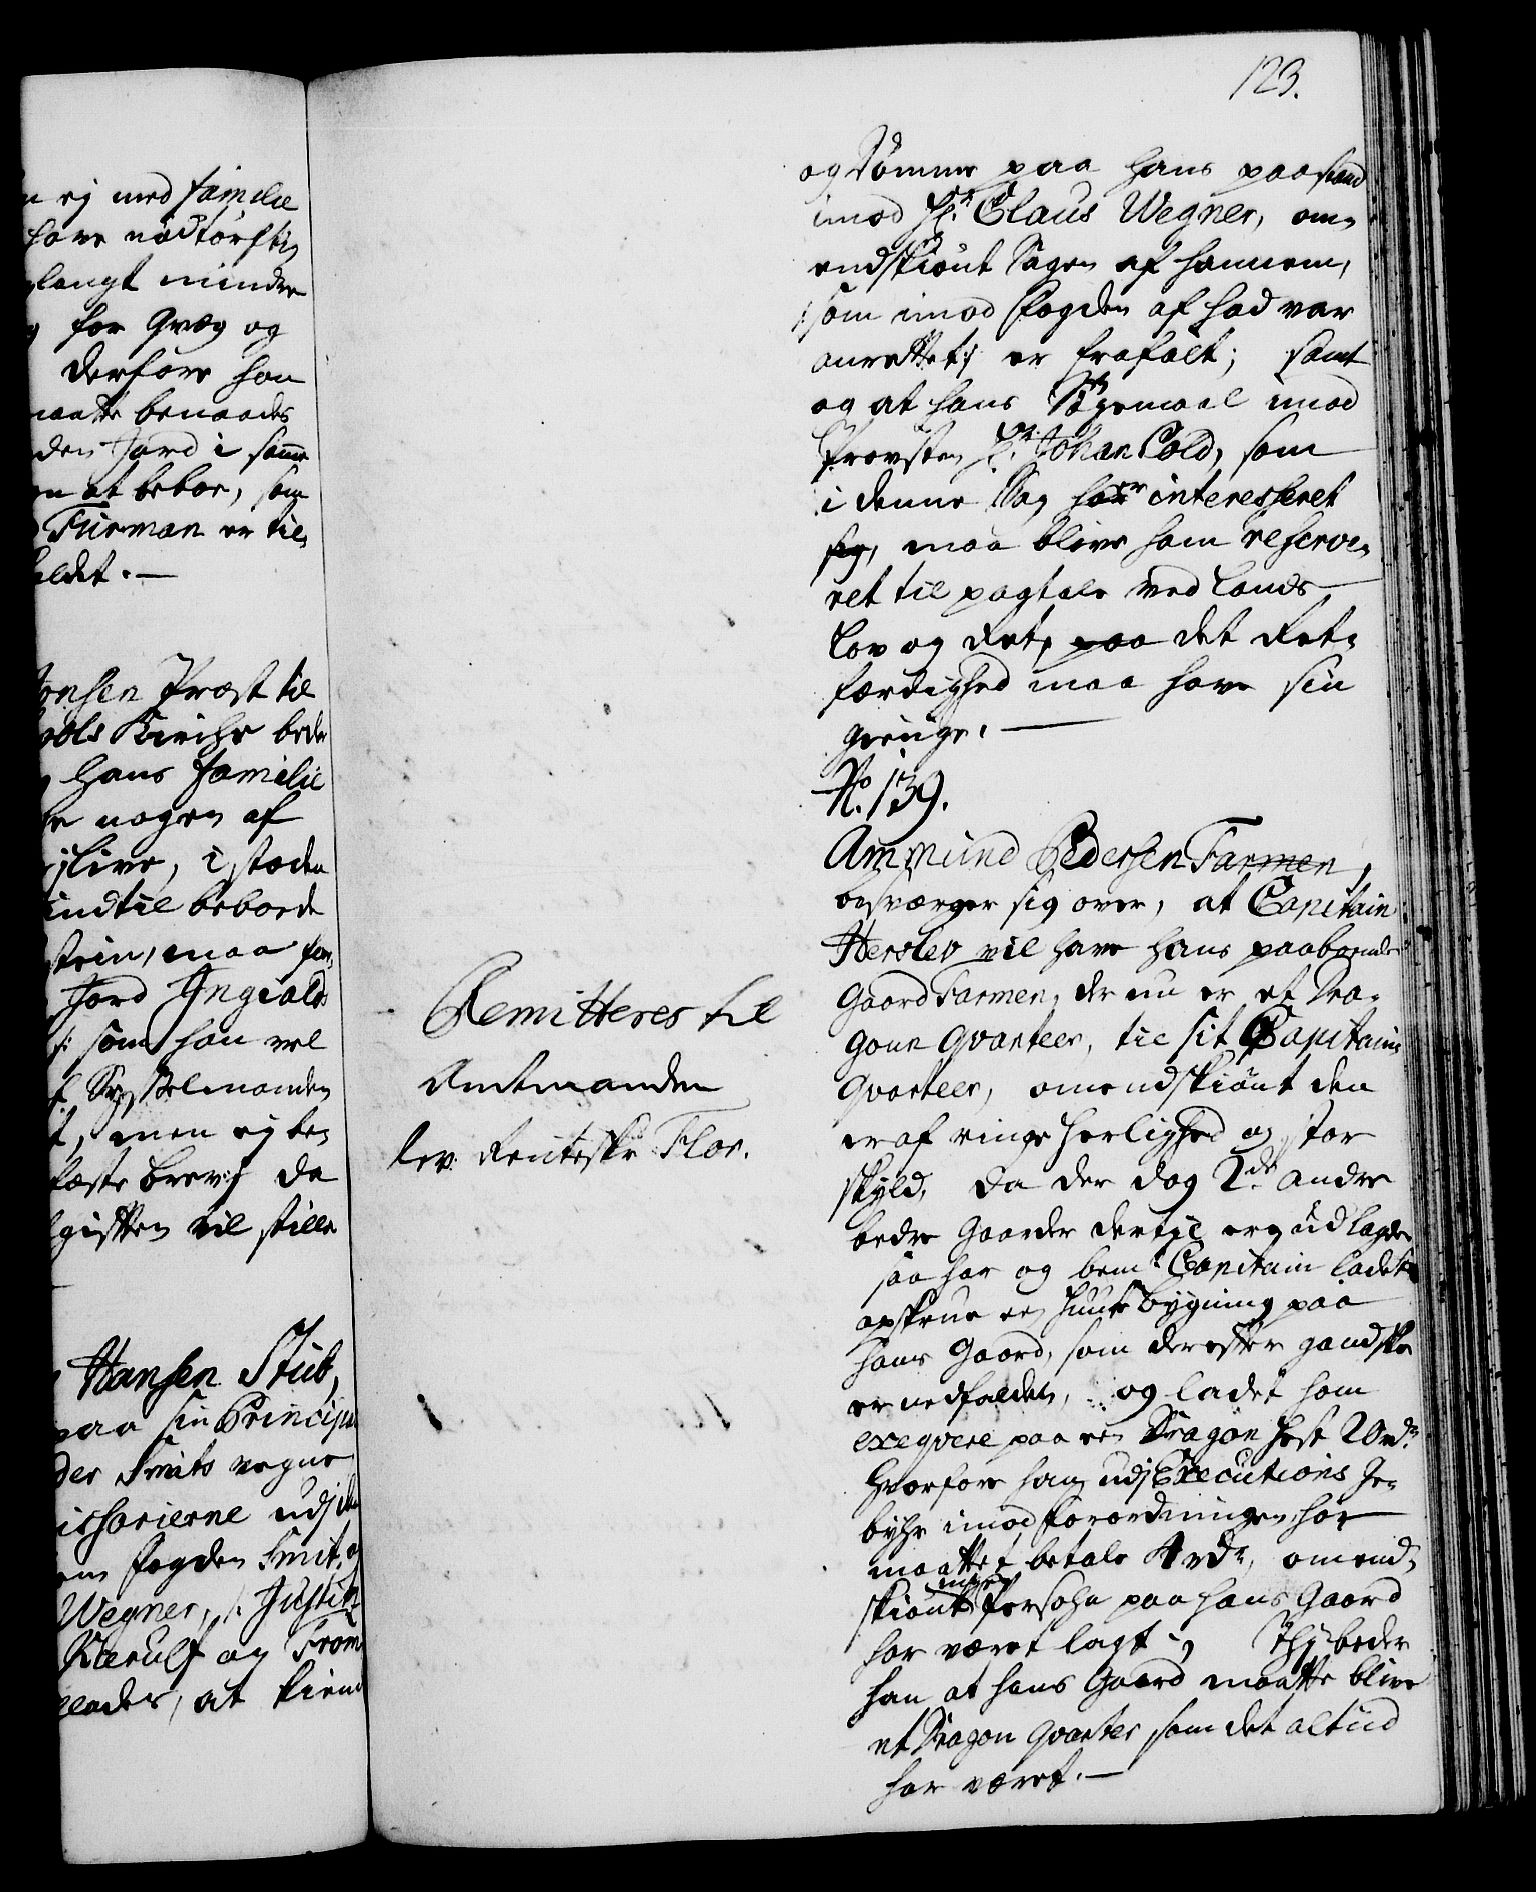 123.
n ej med familie
have nödtörftig
langt mindre
for Qvæg og
derfore han
maatte benaades
den Jord i samme
en at beboe, som
Fuirman er til-
faldet. —
onsen Præst til
ols Kirche beder
hans familie
nogen af
i stæden
indtil beboede
maa for-
Jord Ingialds
/: som han vel
f Sysselmanden
t, men ej be-
fæste brev :/ da
gifften vil stille
Hansen Stub,
paa sin Principal
der Smits vegne
issarierne udj
fogden Smit, og
Wegner, /: Justitz
Kierulf og From
at kiende
og dömme paa hans paastand
imod Hr. Claus Wegner, om-
endskiönt Sagen af hannem,
/: som imod fogden af had var
anrettet :/ er frafalt; samt
og at hans Sögemaal imod
Provsten Hr. Johan Cold, som
i denne Sag har interesseret
sig, maa blive ham reserve-
ret til paatale ved Lands
Lov og Ret, paa det Ret-
færdighed maa have sin
gienge. —
No. 139.
Ammund Pedersen Farmen,
besværger sig over, at Capitain
Herslev vil have hans paaboende
Gaard Farmen, der nu er et Dra-
goun Qvarteer, til sit Capitains
Qvarteer, omendskiönt den
er af ringe herlighed og stor
skyld, da der dog 2de andre
bedre Gaarder dertil er udlagde
saa har og bemte Capitain ladet
opskrue en huus bygning paa
hans Gaard, som derefter gandske
er nedfalden, og ladet ham
exeqvere paa en Dragon hest 20 rdr
hvorfore han udj Executions Ge-
byhr imod forordningen har
maattet betale 4 rdr, omend-
skiönt ingen Persohn paa hans Gaard
har været lagt; Thj beder
han at hans Gaard maatte blive
et Dragon Qvarteer som det altiid
har været. —
Remitteres til
Amtmanden
lev. Renteskr. Flor.